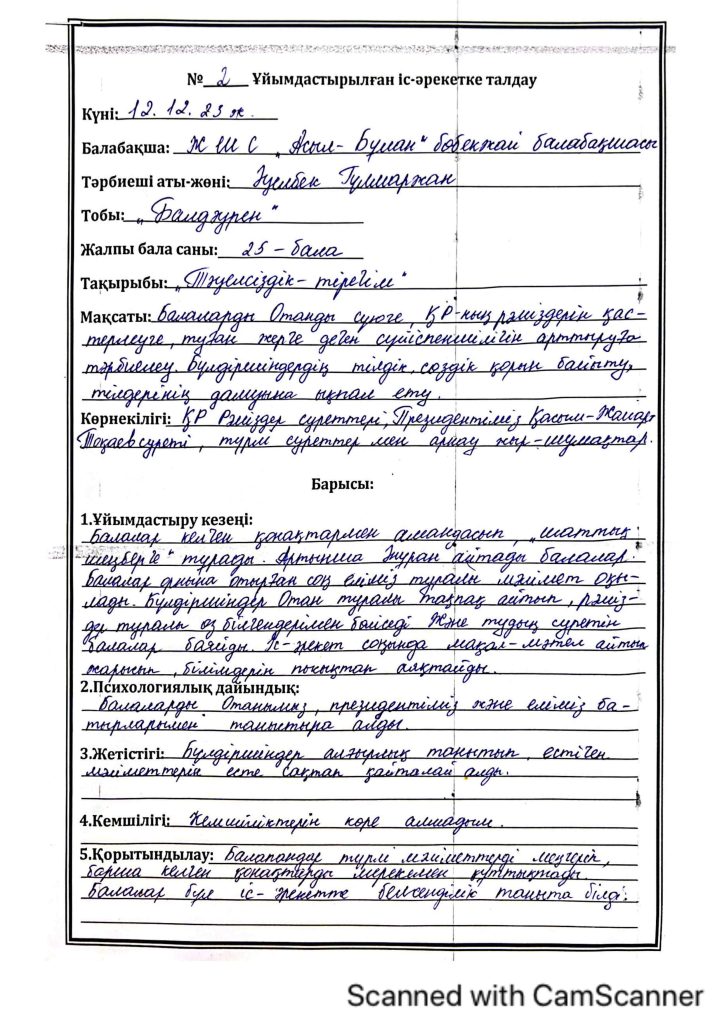 № 2 Ұйымдастырылған іс-әрекетке талдау
Күні: 12. 12. 23 ж.
Балабақша: ЖШС „Асыл-Бұлан" бөбекжай балабақшасы
Тәрбиеші аты-жөні: Әуелбек Гүлмаржан
Тобы: „Балдәурен"
Жалпы бала саны: 25 – бала
Тақырыбы: „Тәуелсіздік – тірегім"
Мақсаты: Балаларды Отанды сүюге, ҚР-ның рәміздерін қас-
терлеуге, туған жерге деген сүйіспеншілігін арттыруға
тәрбиелеу. Бүлдіршіндердің тілдік, сөздік қорын байыту,
тілдерінің дамуына ықпал ету.
Көрнекілігі: ҚР Рәміздер суреттері, Президентіміз Қасым-Жомарт
Тоқаев суреті, түрлі суреттер мен арнау жыр-шумақтар.
Барысы:
1.Ұйымдастыру кезеңі:
Балалар келген қонақтармен амандасып, „шаттық
шеңберге" тұрады. Артынша Әнұран айтады балалар.
Балалар орнына отырған соң еліміз туралы мәлімет оқы-
лады. Бүлдіршіндер Отан туралы тақпақ айтып, рәміз-
дер туралы өз білгендерімен бөліседі Және тудың суретін
балалар бояйды. Іс-әрекет соңында мақал-мәтел айтып
жарысып, білімдерін пысықтап аяқтайды.
2.Психологиялық дайындық:
Балаларды Отанымыз, президентіміз және еліміз ба-
тырларымен таныстыра алды.
3.Жетістігі: Бүлдіршіндер алғырлық танытып, естіген
мәліметтерін есте сақтап қайталай алды.
4.Кемшілігі: Кемшіліктерін көре алмадым.
5.Қорытындылау: Балапандар түрлі мәліметтерді меңгеріп,
барша келген қонақтарды мерекемен құттықтады.
Балалар бұл іс-әрекетте белсенділік таныта білді.
Scanned with CamScanner